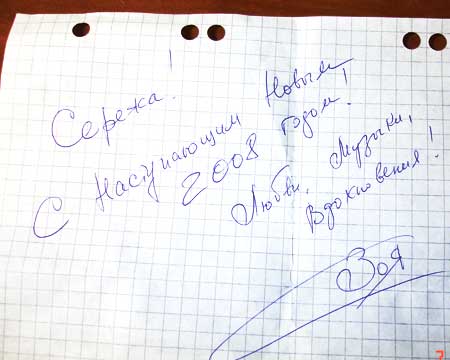 Сережа!
С Наступающим Новым
2008 годом!
Любви, Музыки,
Вдохновения!
Зоя